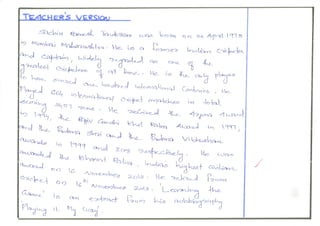 TEACHER'S VERSION
Sachin Ramesh Tendulkar was born on 24 April 1973
in Mumbai Maharashtra. He is a former Indian Cricketer
and Captain, widely regarded as one of the
greatest Cricketers of all time. He is the only player
to have scored one hundred international Centuries. He
Played 664 international cricket matches in total
scoring runs. He received the Arjuna Award
in 1994, the Rajiv Gandhi Khel Ratna Award in 1997,
and the Padma Shri and the Padma Vibhushan
awards in 1999 and respectively. He was
awarded the Bharat Ratna, India's highest civilian
award on 16 November 2013. He retired from
cricket on 16th November 2013. 'Learning the
Game' is an extract from his autobiography
Playing it My Way.